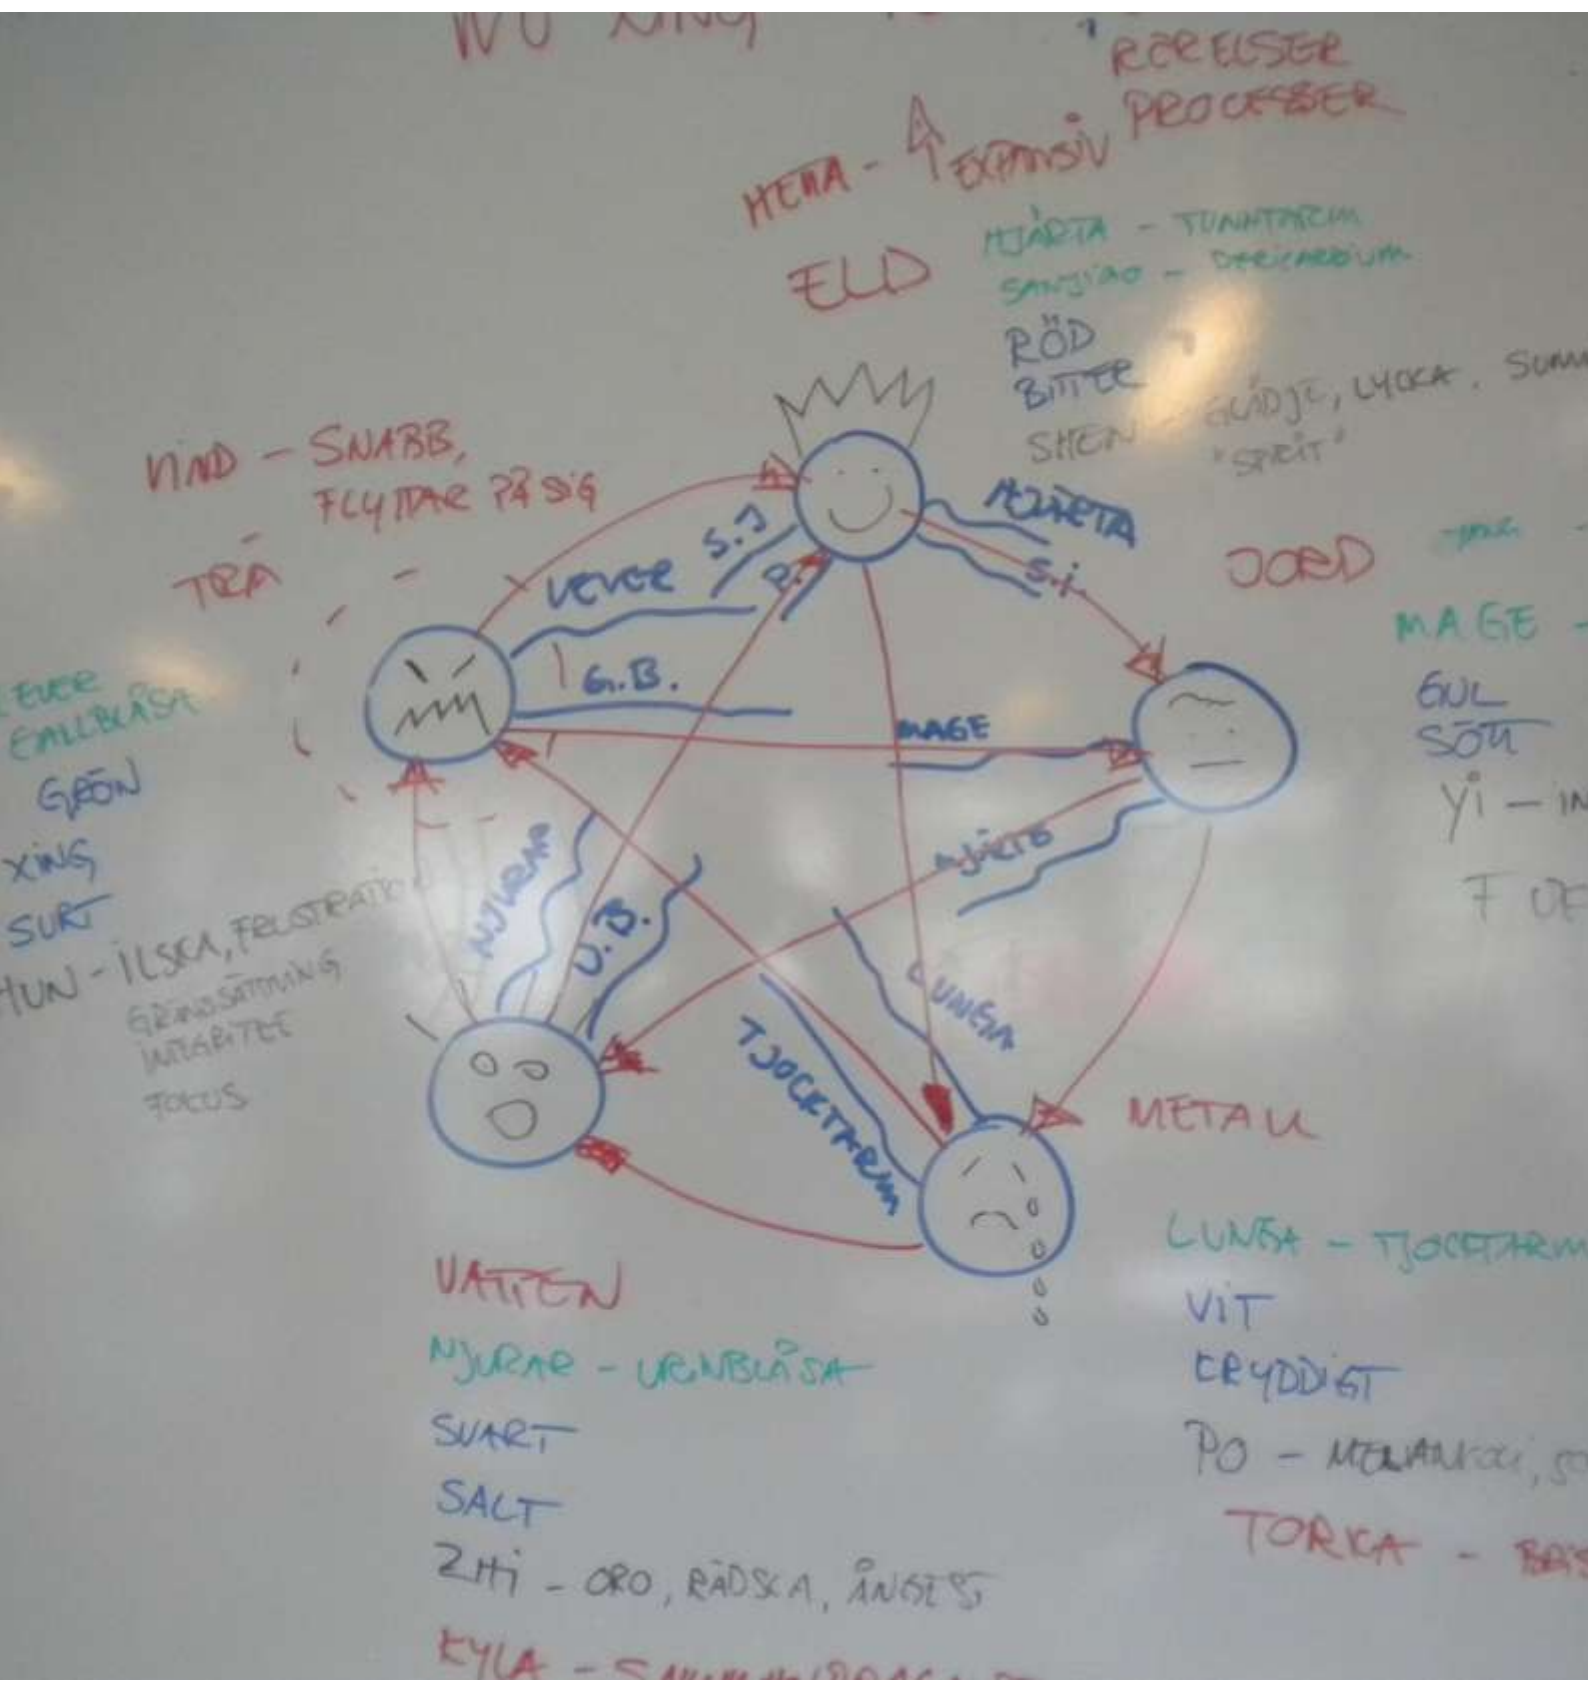 WU XING
RÖRELSER
PROCESSER
HETTA - EXPANSIV
ELD
HJÄRTA - TUNNTARM
SANJIAO - PERICARDIUM
RÖD
BITTER
SHEN - GLÄDJE, LYCKA.
"SPIRIT"
VIND - SNABB,
FLYTTAR PÅ SIG
TRÄ
LEVER
GALLBLÅSA
GRÖN
XING
SURT
HUN - ILSKA, FRUSTRATIO
GRÄNSSÄTTNING
INTEGRITET
FOCUS
LEVER
S.J
P.
G.B.
HJÄRTA
S.i.
MAGE
NJURAR
U.B.
LUNGA
TJOCKTARM
JORD
MAGE -
GUL
SÖTT
Yi -
METALL
LUNGA - TJOCKTARM
VIT
KRYDDIGT
PO - MELANKOLI,
TORKA -
VATTEN
NJURAR - URINBLÅSA
SVART
SALT
ZHi - ORO, RÄDSLA, ÅNGEST
KYLA -